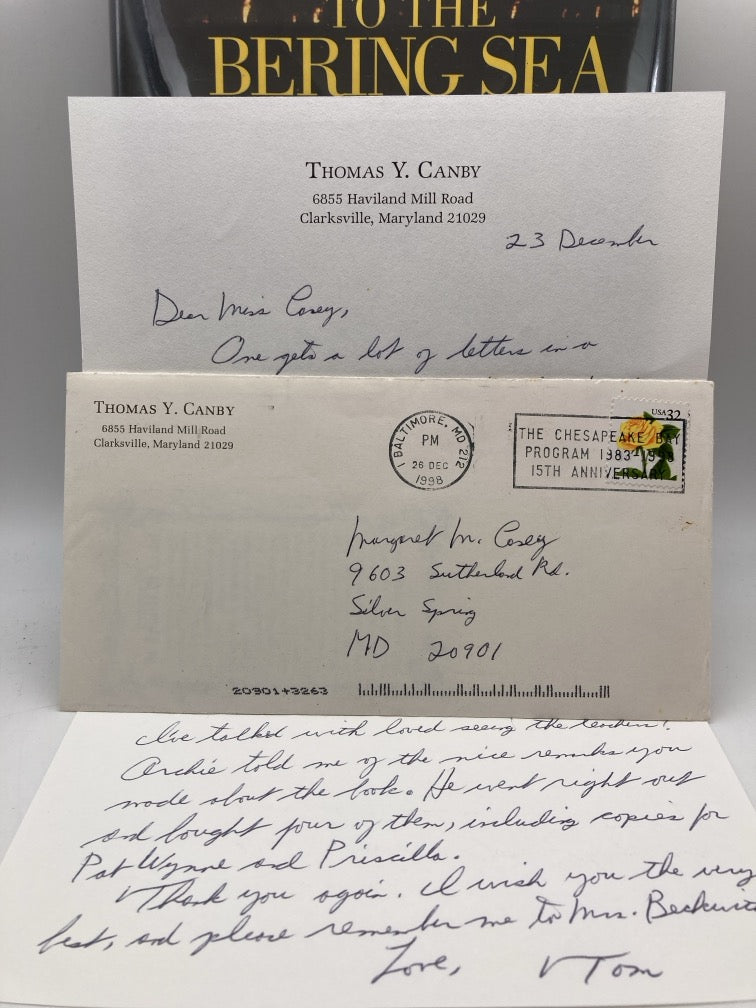 TO THE
BERING SEA
THOMAS Y. CANBY
6855 Haviland Mill Road
Clarksville, Maryland 21029
23 December
Dear Miss Casey,
One gets a lot of letters in a
THOMAS Y. CANBY
6855 Haviland Mill Road
Clarksville, Maryland 21029
BALTIMORE, MD 212
PM
26 DEC
1998
USA 32
THE CHESAPEAKE BAY
PROGRAM 1983-1998
15TH ANNIVERSARY
Margaret M. Casey
9603 Sutherland Rd.
Silver Spring
MD 20901
20901+3263
I've talked with loved seeing the teachers!
Archie told me of the nice remarks you
made about the book. He went right out
and bought four of them, including copies for
Pat Wynne and Priscilla.
Thank you again. I wish you the very
best, and please remember me to Mrs.
Love, Tom